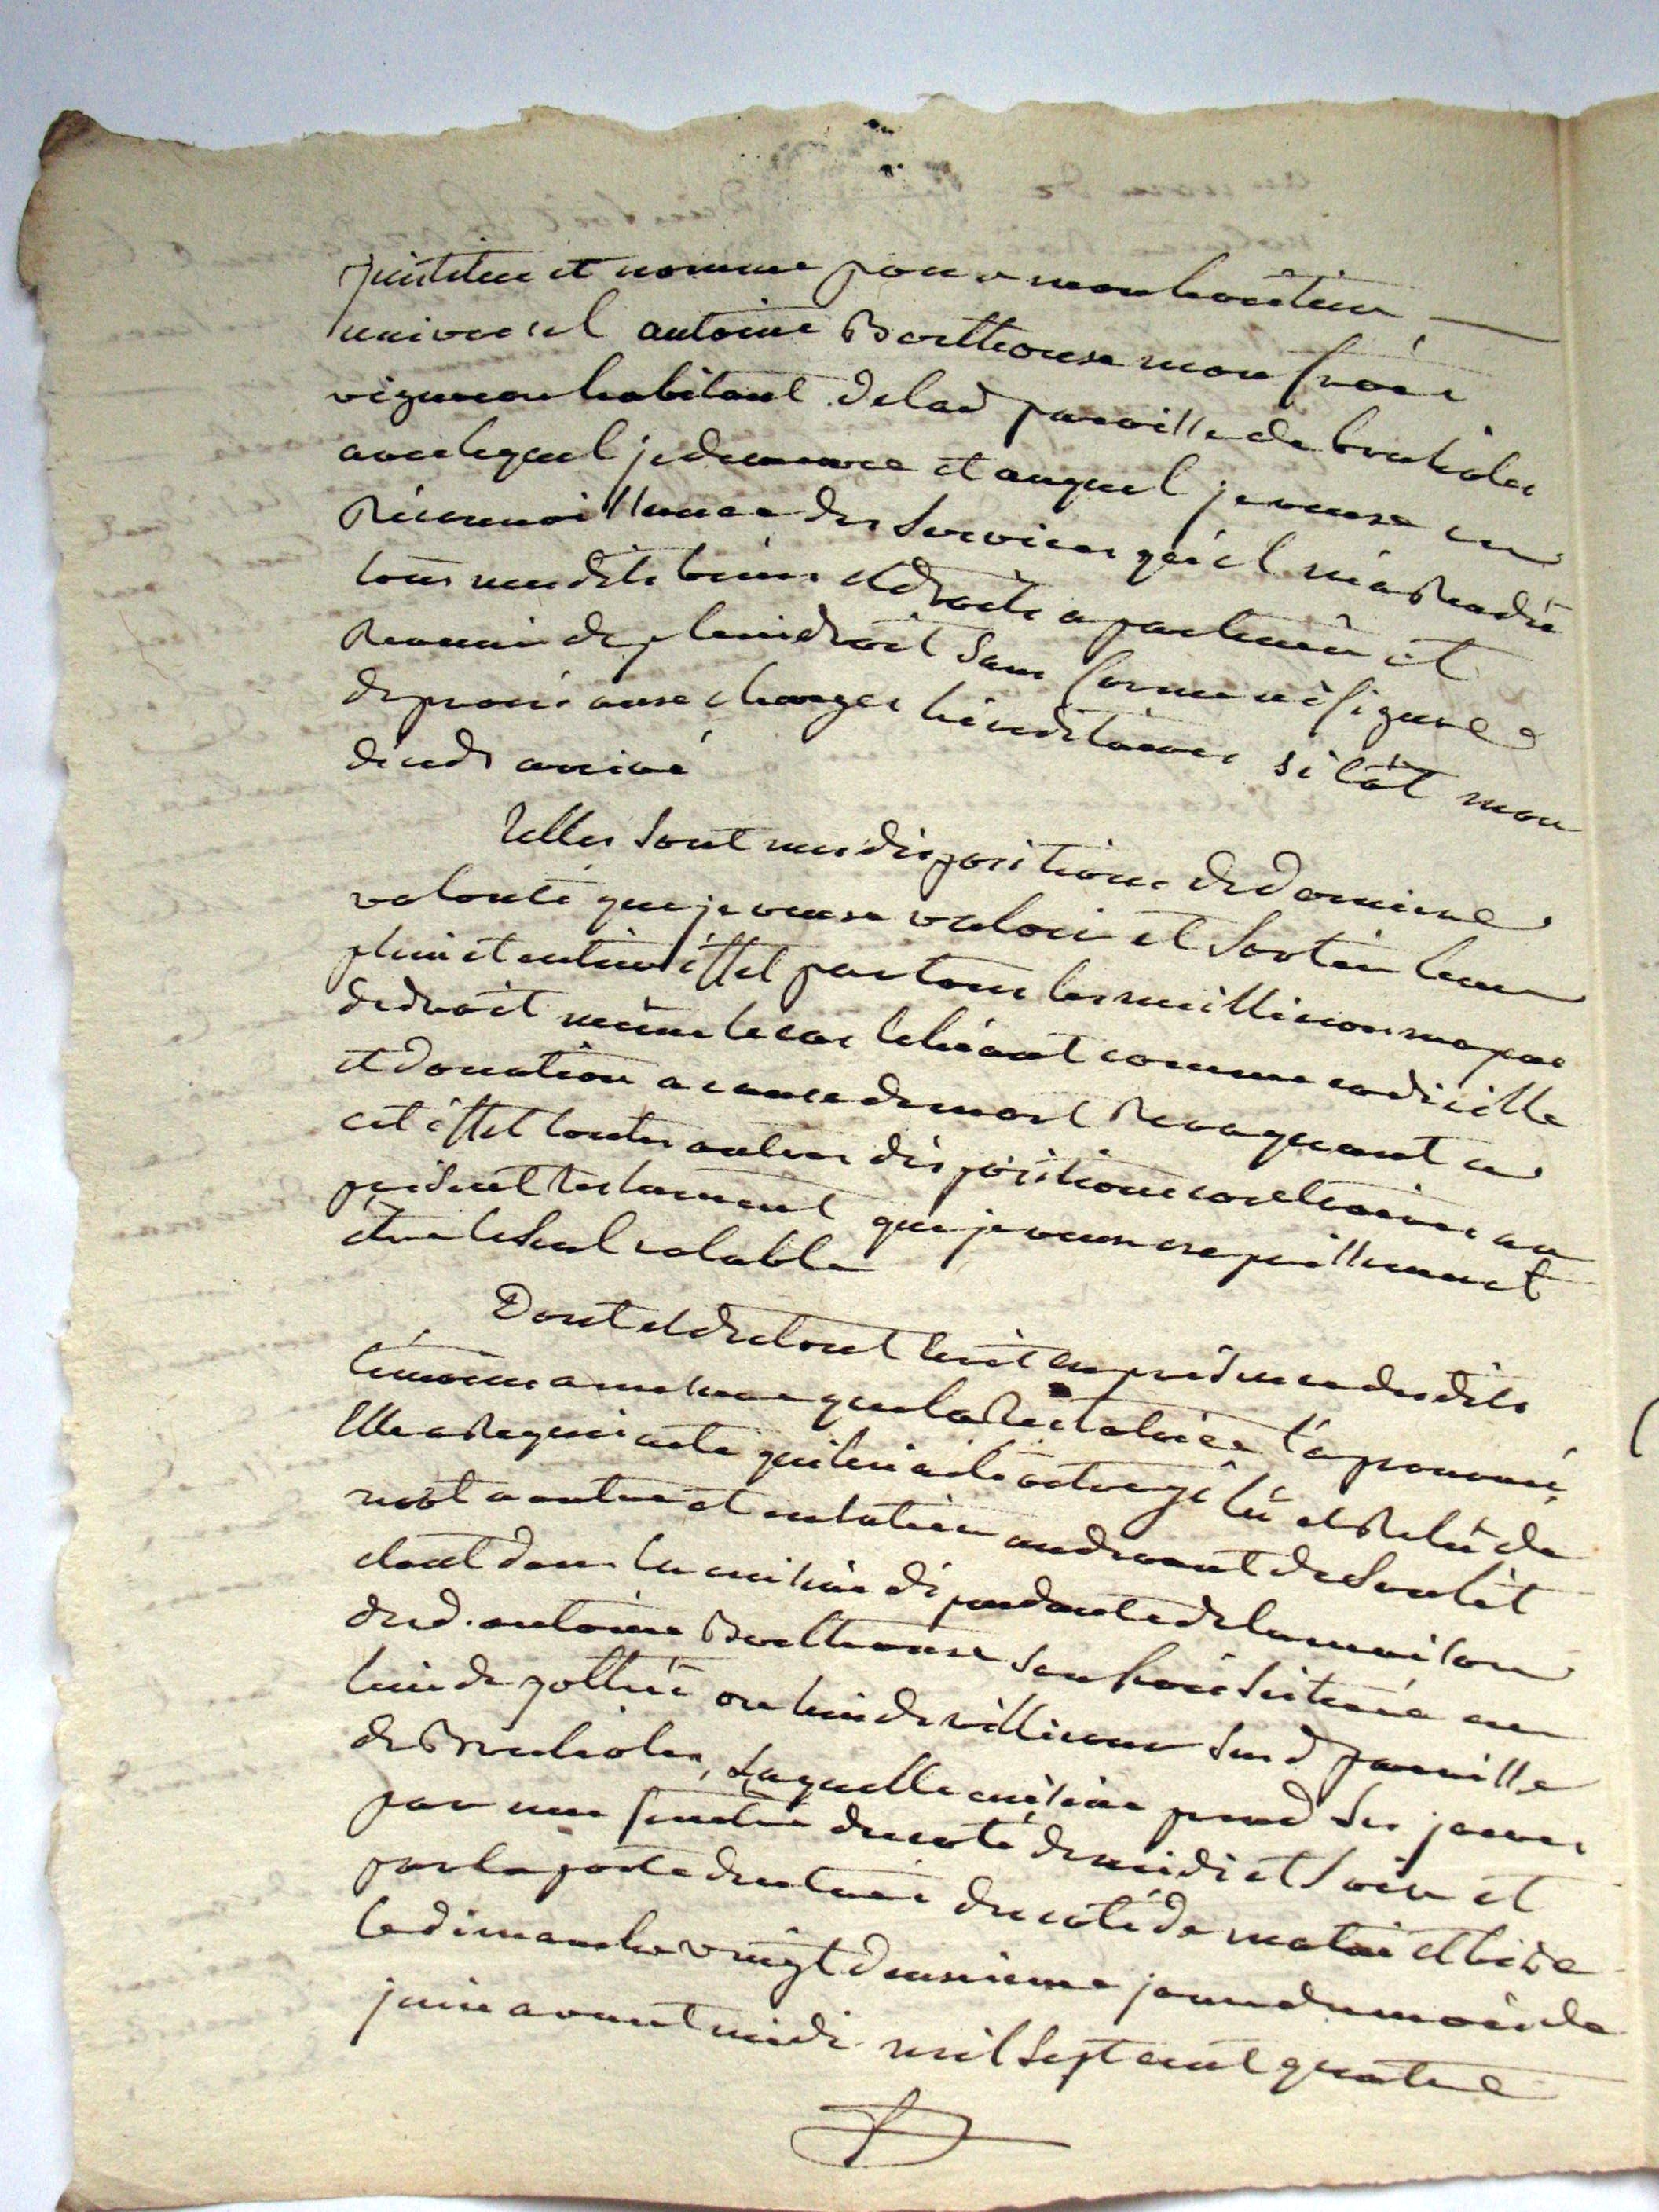 J'institue et nomme pour mon heritier
universel antoine Berthouse mon frère
vigneron habitant de lad paroisse de brulioles
avec lequel je demeure et auquel je veuse en
Reconnoissance des Services qu'il m'a Rendu
tous mesdits biens et droits apartenir et
Revenir de plein droit Sans forme ni figure
de procès ause charges héréditaires sitôt mon
deceds arrivé
Telles Sont mes dispositions de derniere
volonté que je veuse valoir et Sortir leur
plein et entier éffet par tous les meillieurs moyens
de droit même le cas échéant comme codicille
et donation a cause de mort Revoquant a
cet éffet toutes autres dispositions contraires au
présent testament que je veuse expressement
être le Seul valable
Dont et du tout écrit en présence desdits
témoins a mesure que la Testatrice l'a prononcé
Elle a Requis acte qui lui a été octroyé lu et Relu de
mot a autre et en entier au devant de Son lit
etant dans la cuisine dépendante de la maison
dud. antoine Berthouse Son frère Scituée au
lieu de gottié ou lieu de Villieux Susd paroisse
de Brulioles, Laquelle cuisine prend Ses jours
par une fenêtre du coté de midi et Soir et
par la porte d'entrée du coté de matin et bise
le dimanche vingt deusieme jour du mois de
juin avant midi mil Sept cent quatre